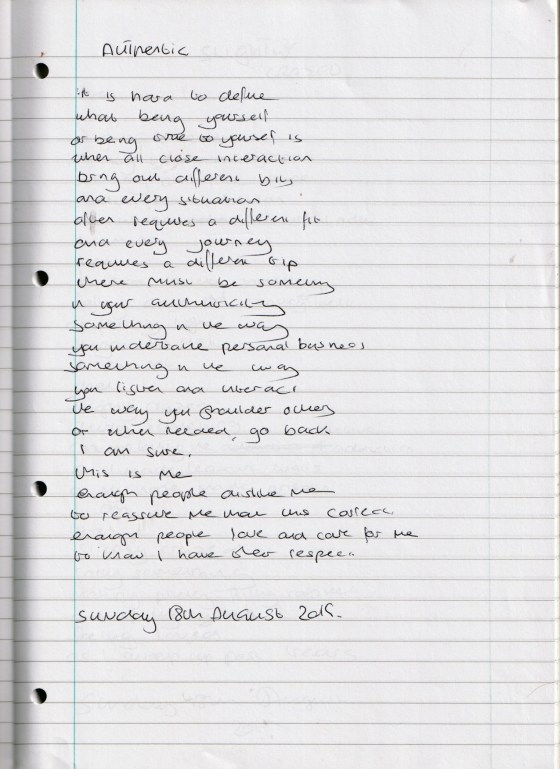 Authentic
it is hard to define
what being yourself
or being true to yourself is
when all close interaction
bring out different bits
and every situation
often requires a different fit
and every journey
requires a different trip
there must be something
in your authenticity
something in the way
you undertake personal business
something in the way
you listen and interact
the way you shoulder others
or when needed, go back.
I am sure.
this is me
enough people dislike me
to reassure me that this correct
enough people love and care for me
to know I have their respect.
Sunday 18th August 2019.